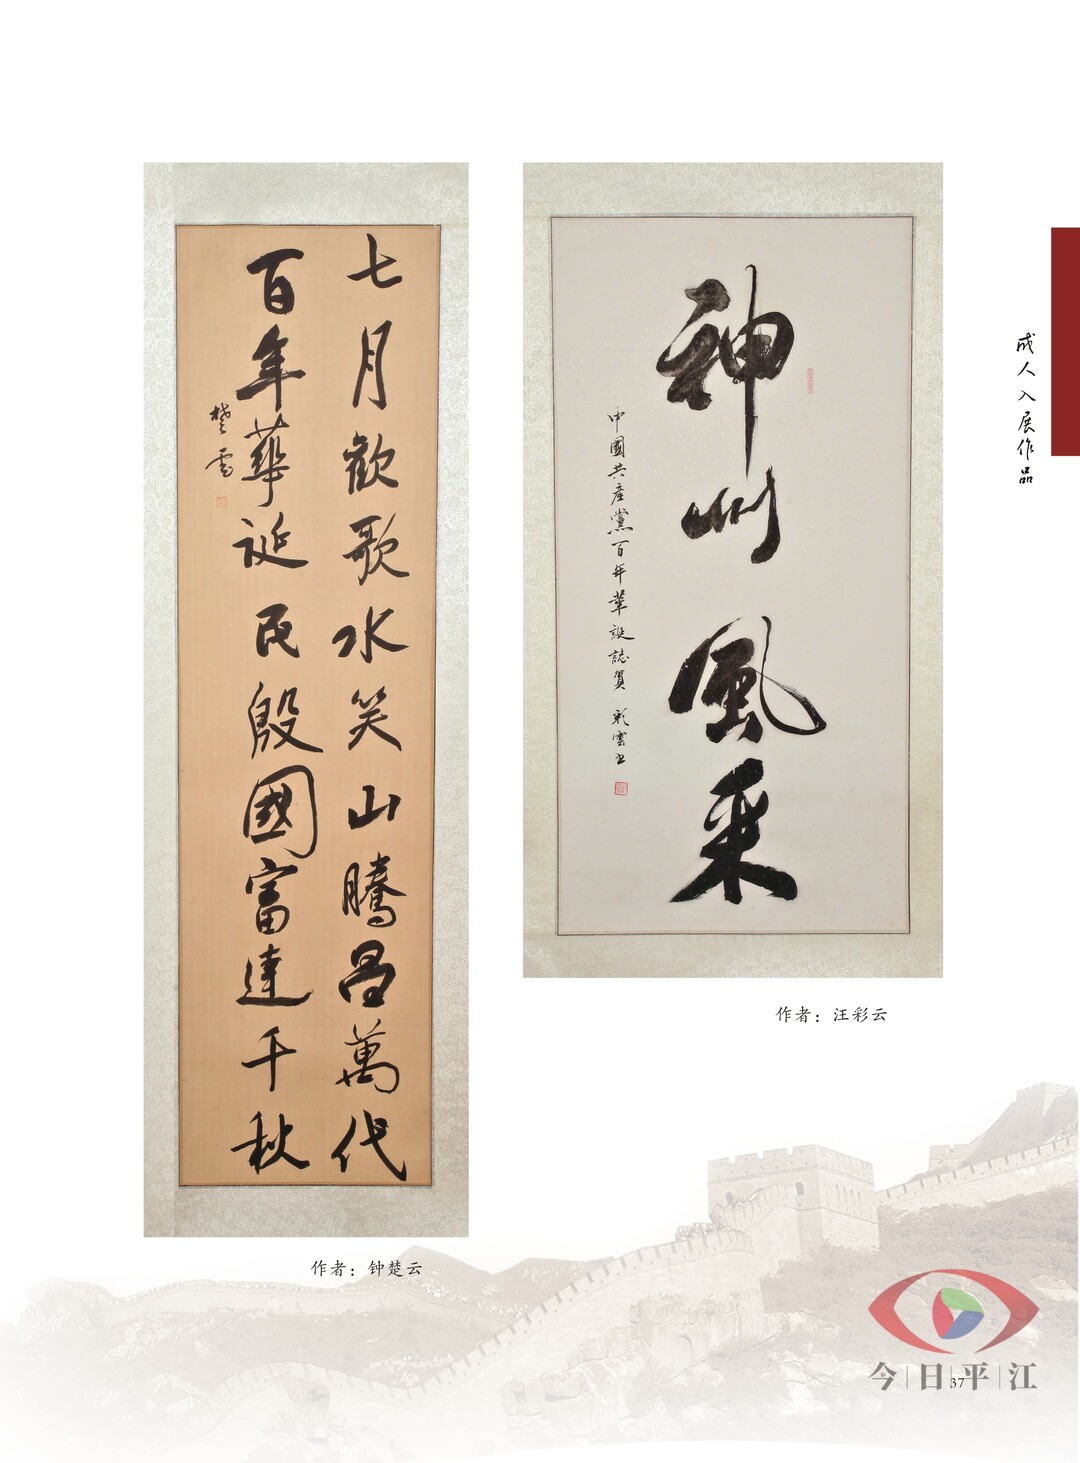 七月歡歌水笑山騰昌萬代
百年華诞民殷國富達千秋
楚雲
作者：钟楚云
神州風采
中國共產黨百年華誕誌賀 彩雲书
作者：汪彩云
成人入展作品
今日平江
37